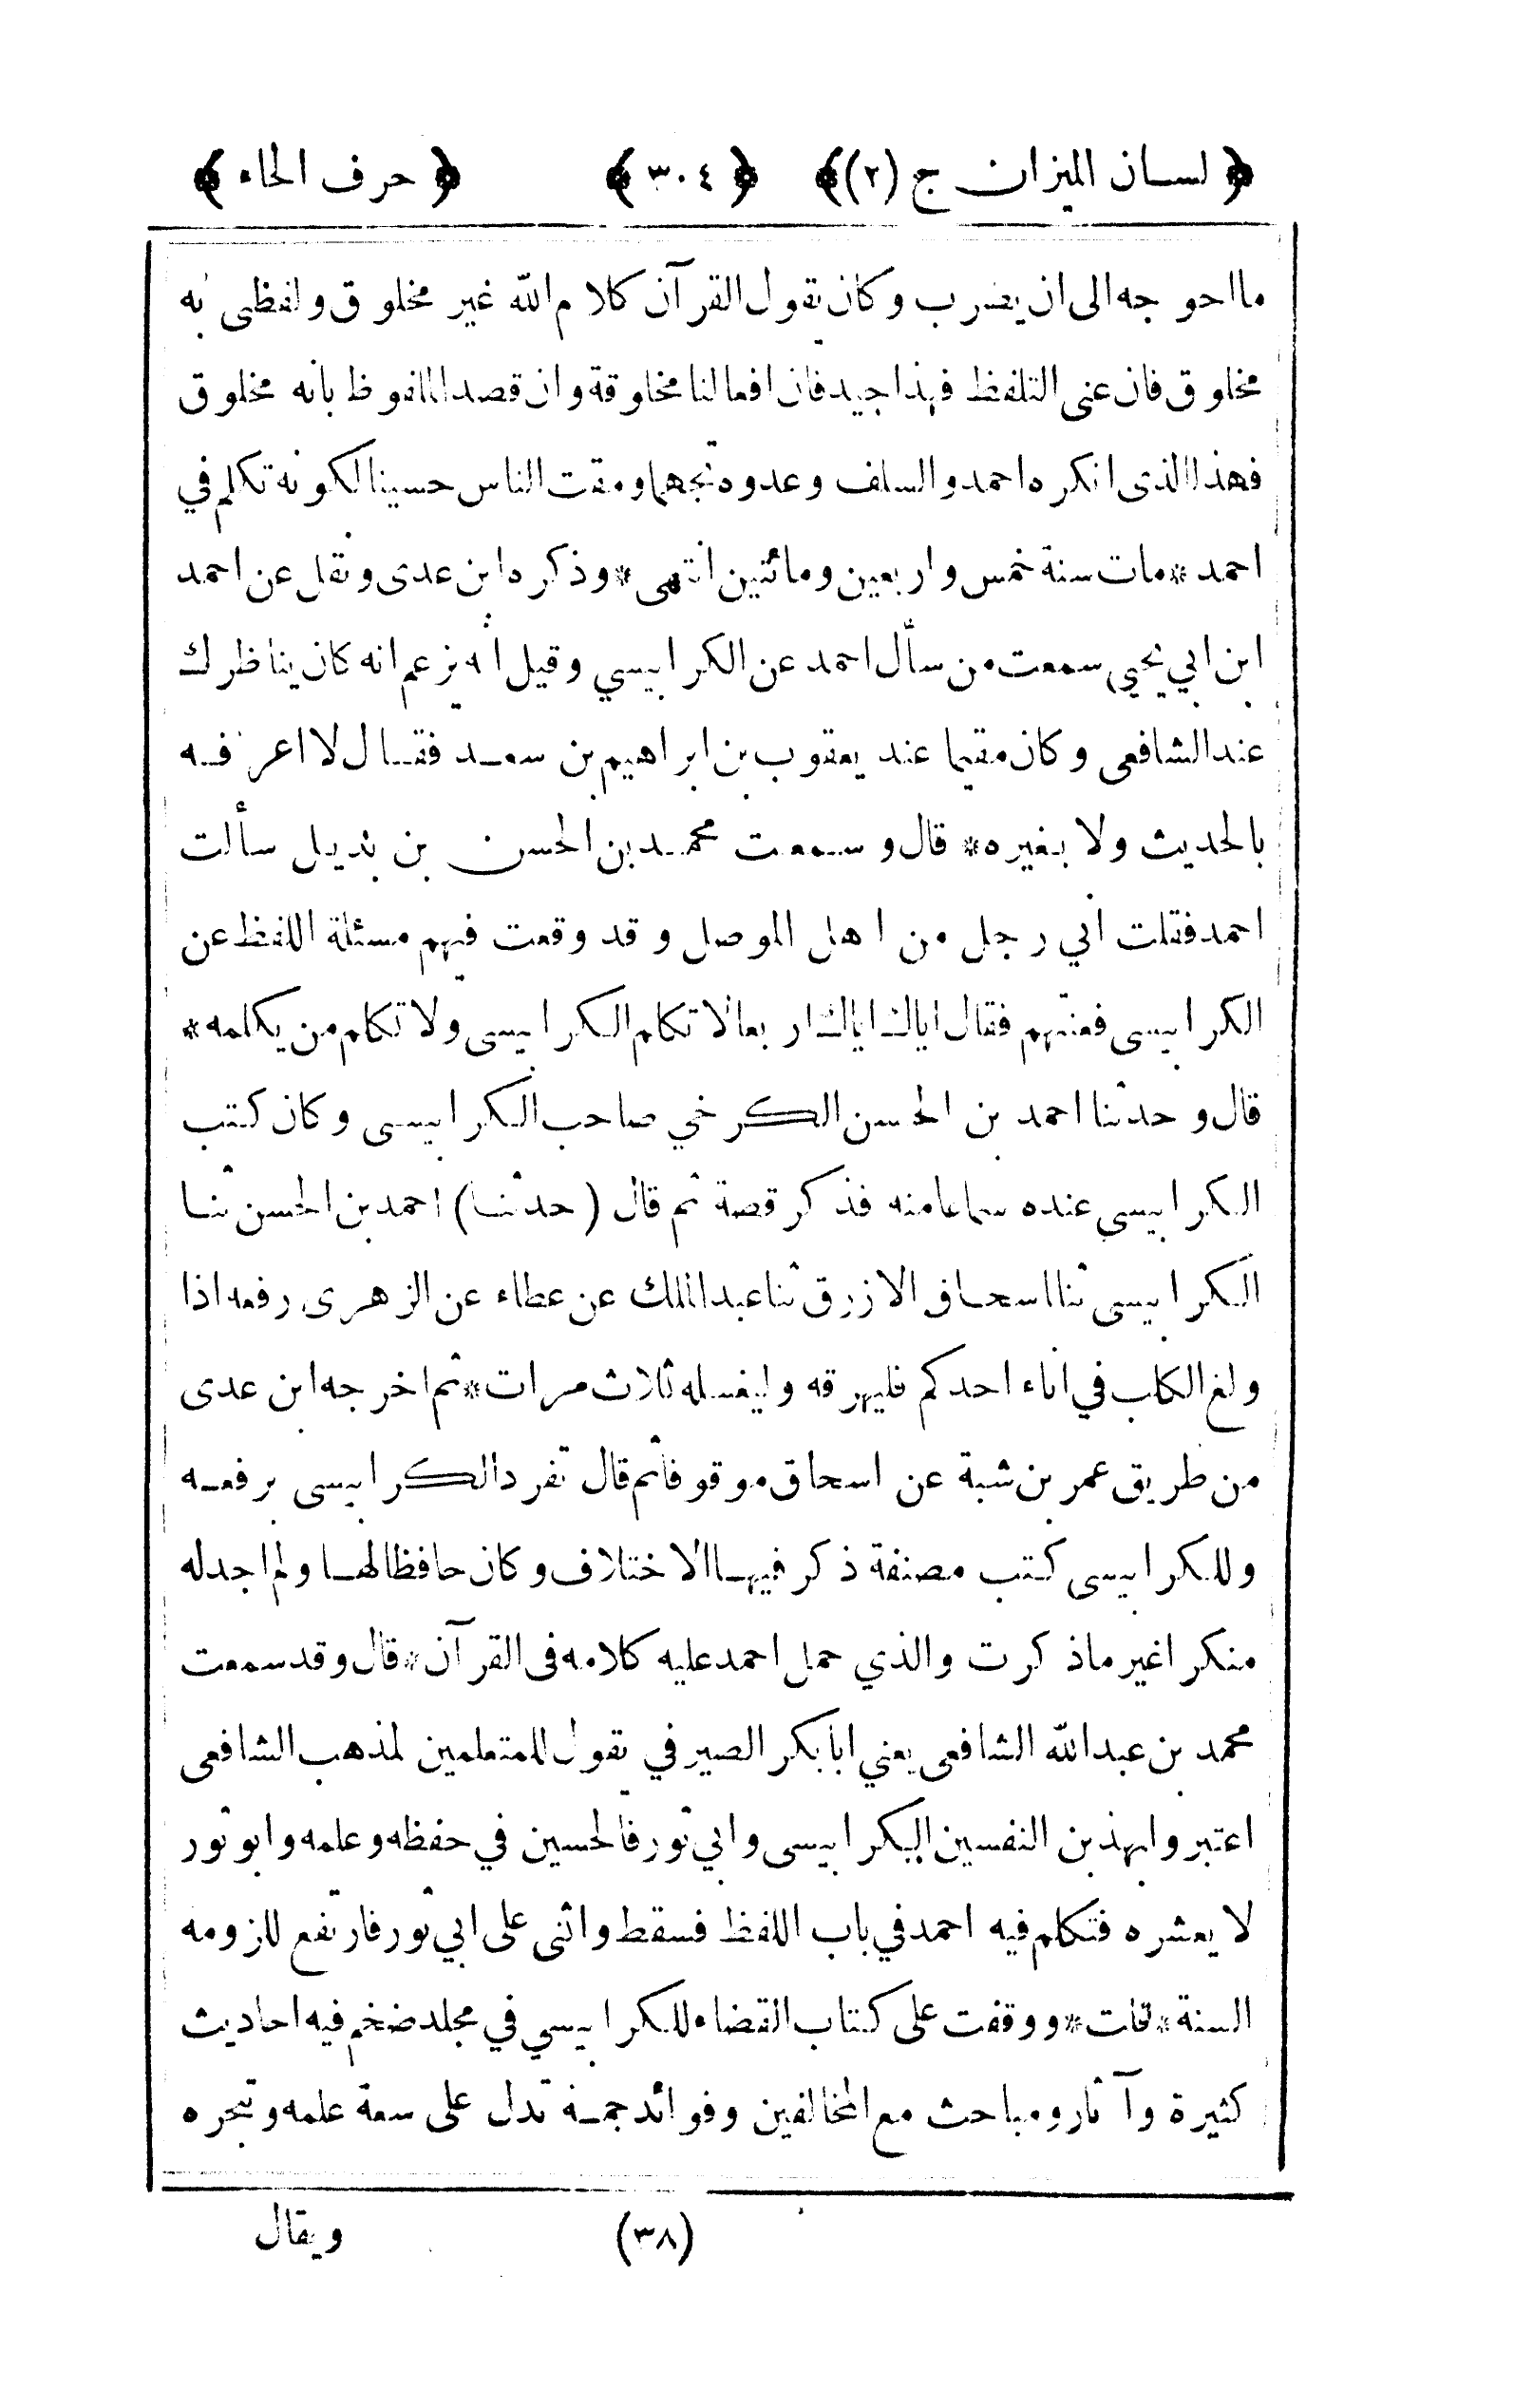 ﴿ لسان الميزان ج (٢)﴾ ﴿ ٣٠٤ ﴾ ﴿ حرف الحاء ﴾
ما احوجه الى ان يضرب وكان يقول القرآن كلام الله غير مخلوق ولفظي به
مخلوق فان عنى التلفظ فهذا جيد فان افعالنا مخلوقة وان قصد الملفوظ بأنه مخلوق
فهذا الذى انكره احمد والسلف وعدوه تجهما ومقت الناس حسينا لكونه تكلم في
احمد * مات سنة خمس واربعين ومائتين انتهى * وذكره ابن عدى ونقل عن احمد
ابن ابي يحيى سمعت من سأل احمد عن الكرابيسي وقيل له يزعم انه كان يناظرك
عند الشافعى وكان مقيما عند يعقوب بن ابراهيم بن سعد فقال لا اعرفه
بالحديث ولا بغيره * قال وسمعت محمد بن الحسن بن بديل سألت
احمد فقلت اني رجل من اهل الموصل وقد وقعت فيهم مسئلة اللفظ عن
الكرابيسى فعنتهم فقال اياك اياك اربعا لا تكلم الكرابيسى ولا تكلم من يكلمه *
قال وحدثنا احمد بن الحسن الكرخي صاحب الكرابيسى وكان كتب
الكرابيسى عنده سماعا منه فذكر قصة ثم قال (حدثنا) احمد بن الحسن ثنا
الكرابيسى ثنا اسحاق الازرق ثنا عبد الملك عن عطاء عن الزهرى رفعه اذا
ولغ الكلب في اناء احدكم فليهرقه وليغسله ثلاث مرات * ثم اخرجه ابن عدى
من طريق عمر بن شبة عن اسحاق موقوفا ثم قال تفرد الكرابيسى برفعه
وللكرابيسى كتب مصنفة ذكر فيها الاختلاف وكان حافظا لها ولم اجد له
منكرا غير ما ذكرت والذي حمل احمد عليه كلامه فى القرآن * قال وقد سمعت
محمد بن عبد الله الشافعى يعني ابا بكر الصيرفي يقول للمتعلمين لمذهب الشافعى
اعتبروا بهذين النفسين الكرابيسى وابي ثور فالحسين في حفظه وعلمه وابو ثور
لا يعشره فتكلم فيه احمد في باب اللفظ فسقط واثنى على ابي ثور فارتفع للزومه
السنة * قلت * ووقفت على كتاب القضاء للكرابيسي في مجلد ضخم فيه احاديث
كثيرة وآثار ومباحث مع المخالفين وفوائد جمة تدل على سعة علمه وتبحره
(٣٨) ويقال